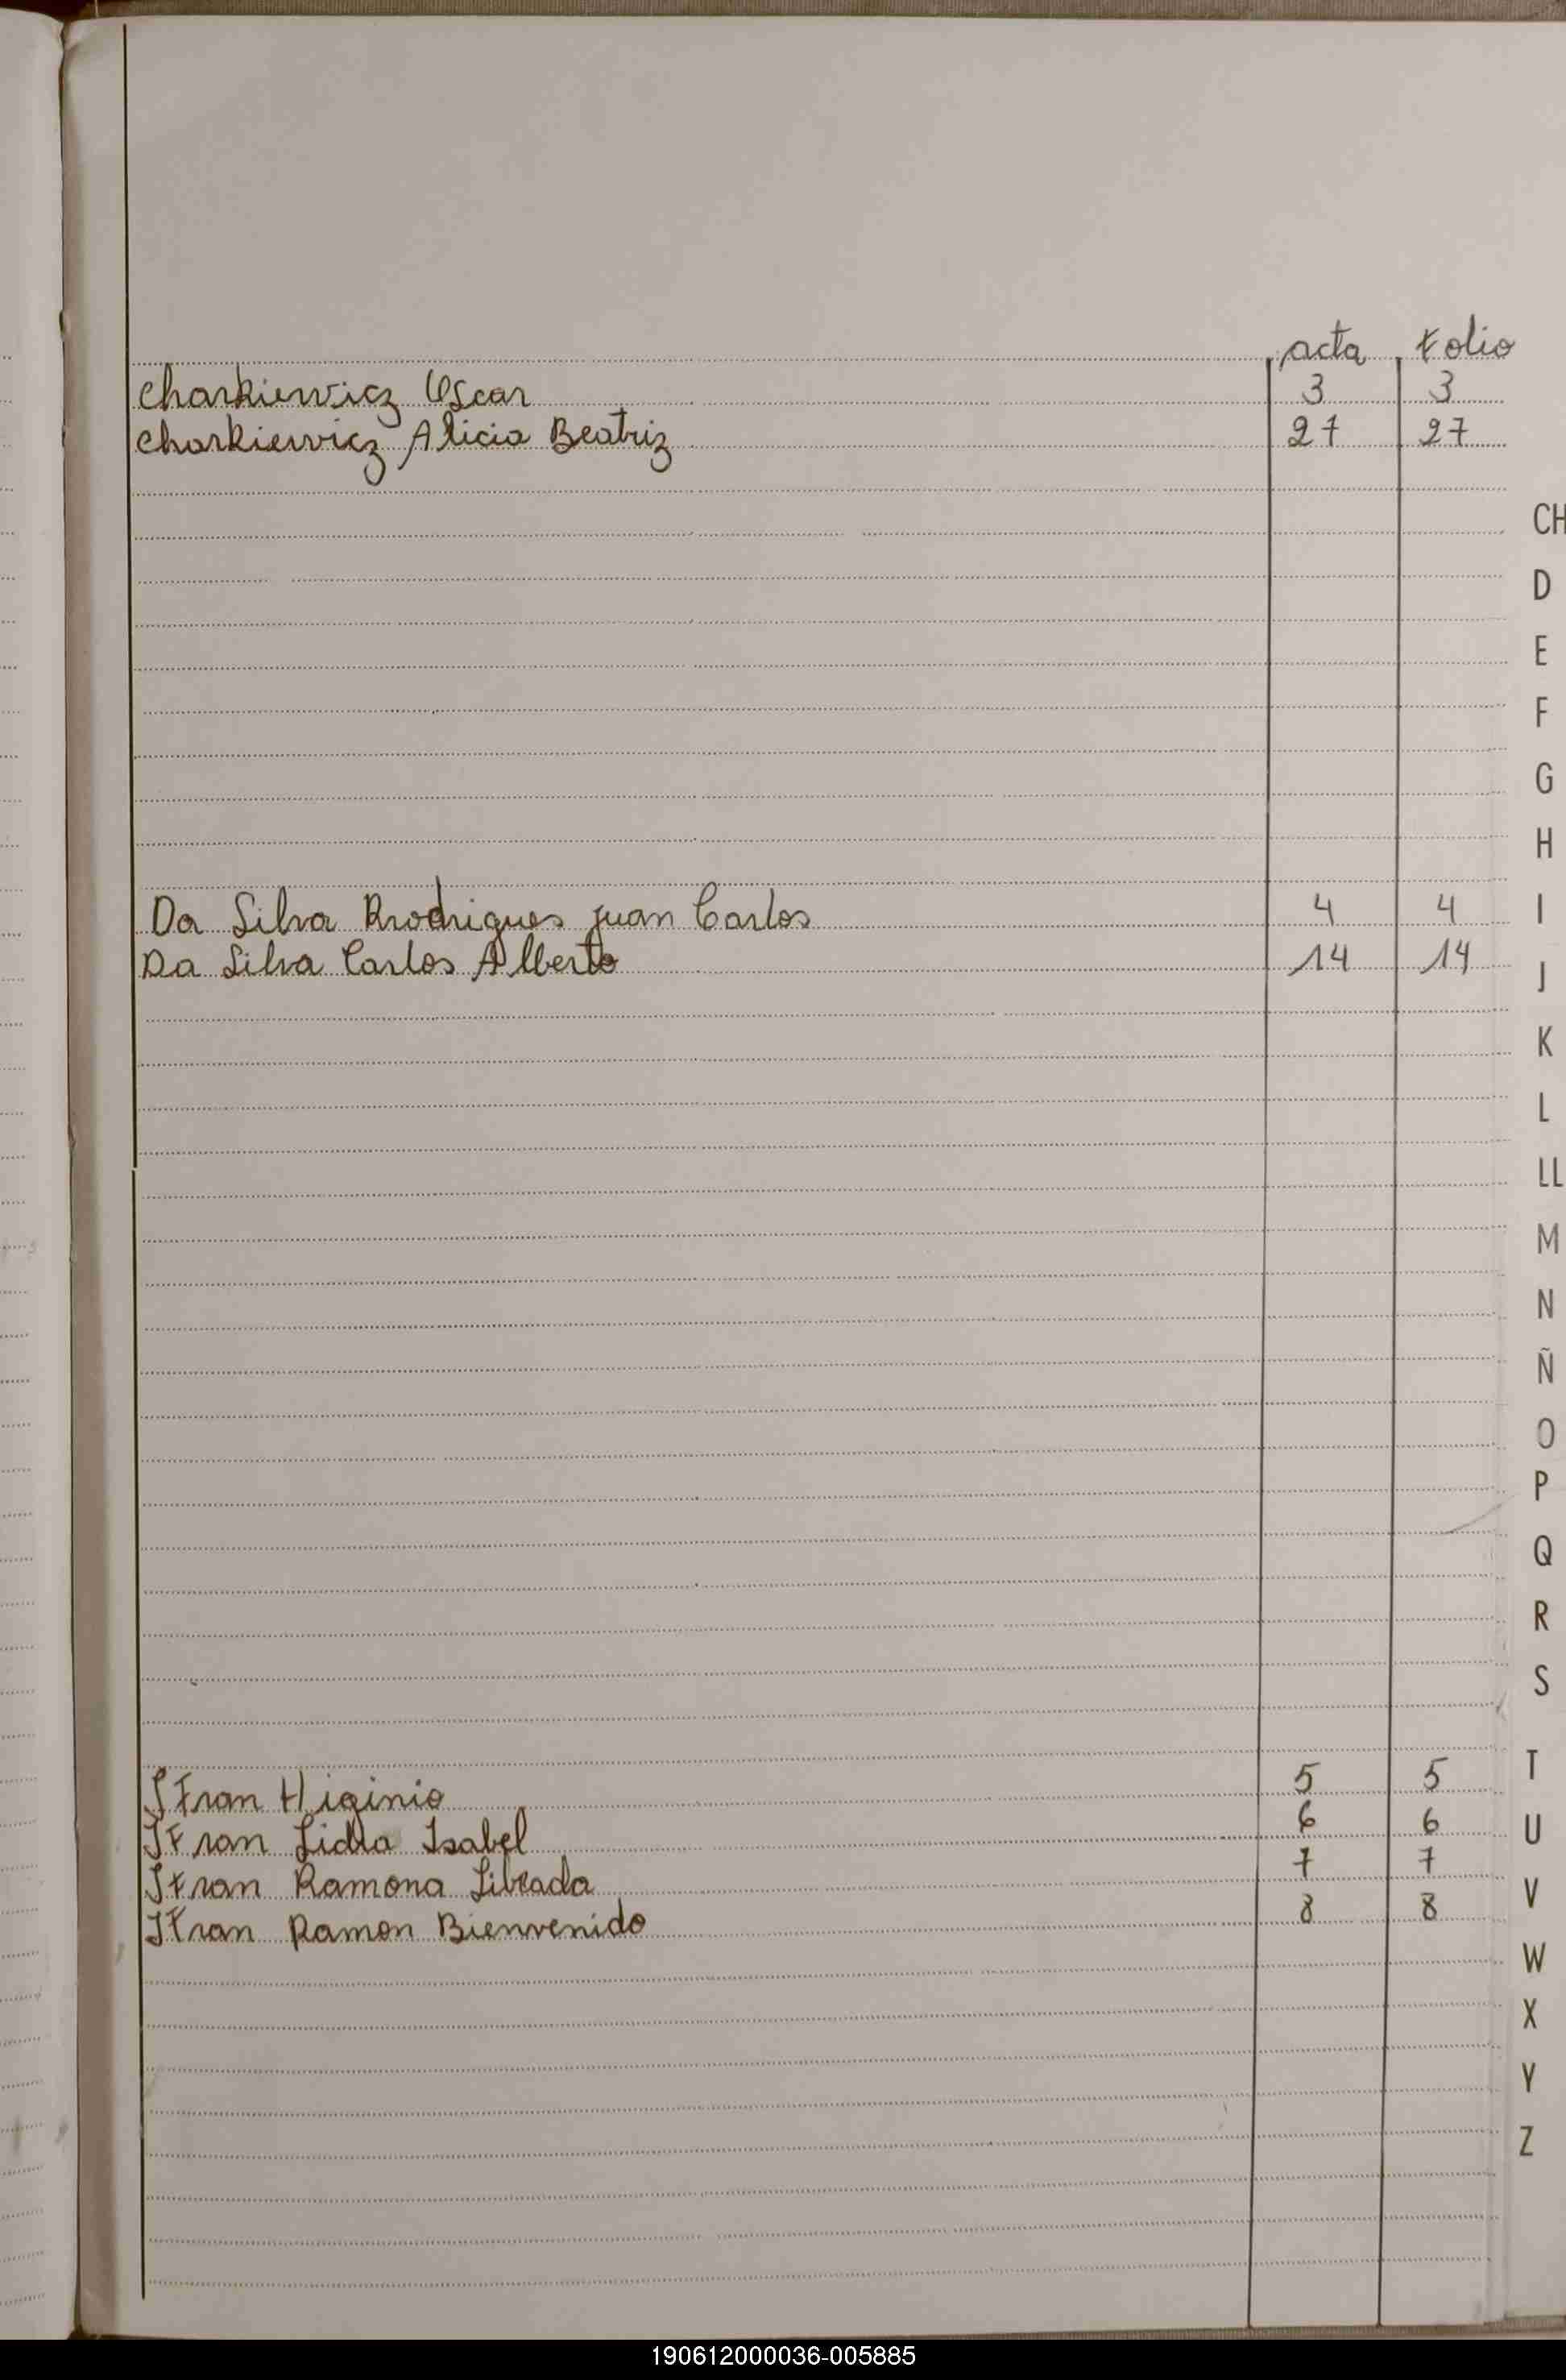 acta folio
Charkiewicz Oscar 3 3
Charkiewicz Alicia Beatriz 27 27
CH
D
E
F
G
H
Da Silva Rrodrigues juan Carlos 4 4 I
Da Silva Carlos Alberto 14 14 J
K
L
LL
M
N
Ñ
O
P
Q
R
S
T
Ifran Higinio 5 5
Ifran Lidia Isabel 6 6 U
Ifran Ramona Librada 7 7 V
Ifran Ramon Bienvenido 8 8
W
X
Y
Z
190612000036-005885